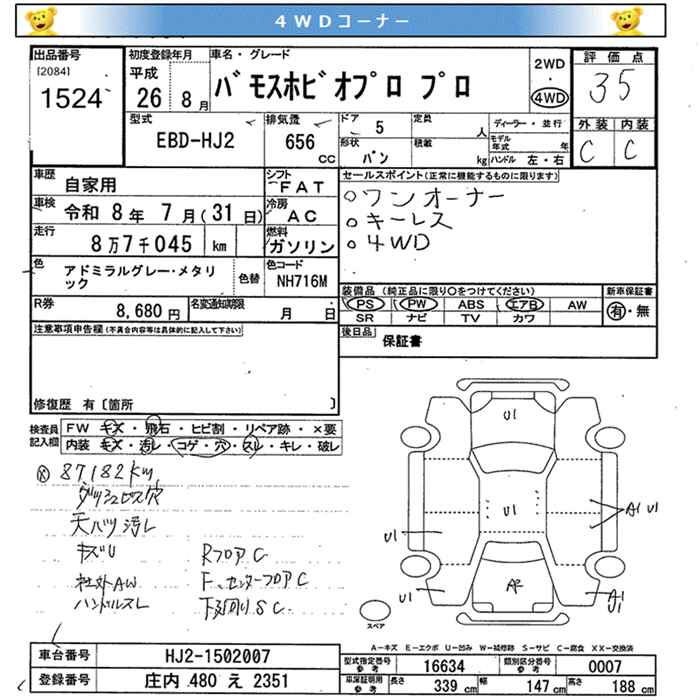 4WDコーナー
出品番号
[2084]
1524
初度登録年月
平成
26年 8月
車名・グレード
バモスホビオプロ プロ
2WD
・
4WD
評価点
35
外装 内装
C C
型式
EBD-HJ2
排気量
656
CC
ドア
5
定員
人
ディーラー・並行
形状
バン
積載
kg
モデル年式 年
ハンドル 左・右
車歴
自家用
シフト
FAT
車検
令和 8年 7月(31日)
冷房
AC
走行
8万7千045 km
燃料
ガソリン
色
アドミラルグレー・メタリック
色替
色コード
NH716M
R券
8,680 円
名変通知期限
月 日
セールスポイント(正常に機能するものに限ります)
○ワンオーナー
○キーレス
○4WD
装備品 (純正品に限り○をつけてください)
PS PW ABS エアB AW
SR ナビ TV カワ
新車保証書
有・無
後日品
保証書
注意事項申告欄(不具合内容等は具体的に記入して下さい)
修復歴 有〔箇所 〕
検査員
記入欄
FW キズ・飛石・ヒビ割・リペア跡・×要
内装 キズ・汚レ・コゲ・穴・スレ・キレ・破レ
87182km
ダッシュビス穴
天バリ汚レ
キズU RフロアC
社外AW F、センターフロアC
ハンドルスレ 下廻りSC
U1
U1
U1
A1 U1
AP
U1
A1
スペア
A-キズ E-エクボ U-凹み W-補修跡 S-サビ C-腐食 XX-交換済
車台番号
HJ2-1502007
型式指定番号
参考
16634
類別区分番号
参考
0007
登録番号
庄内 480 え 2351
車庫証明用
参考
長さ 339 cm 幅 147 cm 高さ 188 cm